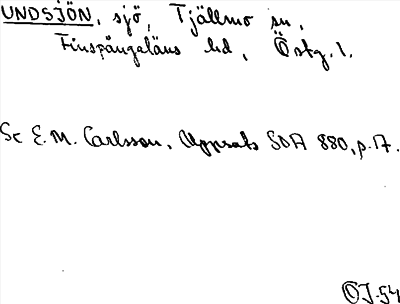 UNDSJÖN, sjö, Tjällmo sn,
Finspångaläns hd, Östg. l.
Se E. M. Carlsson, Uppsats SOA 880, p. 17.
OJ. 54